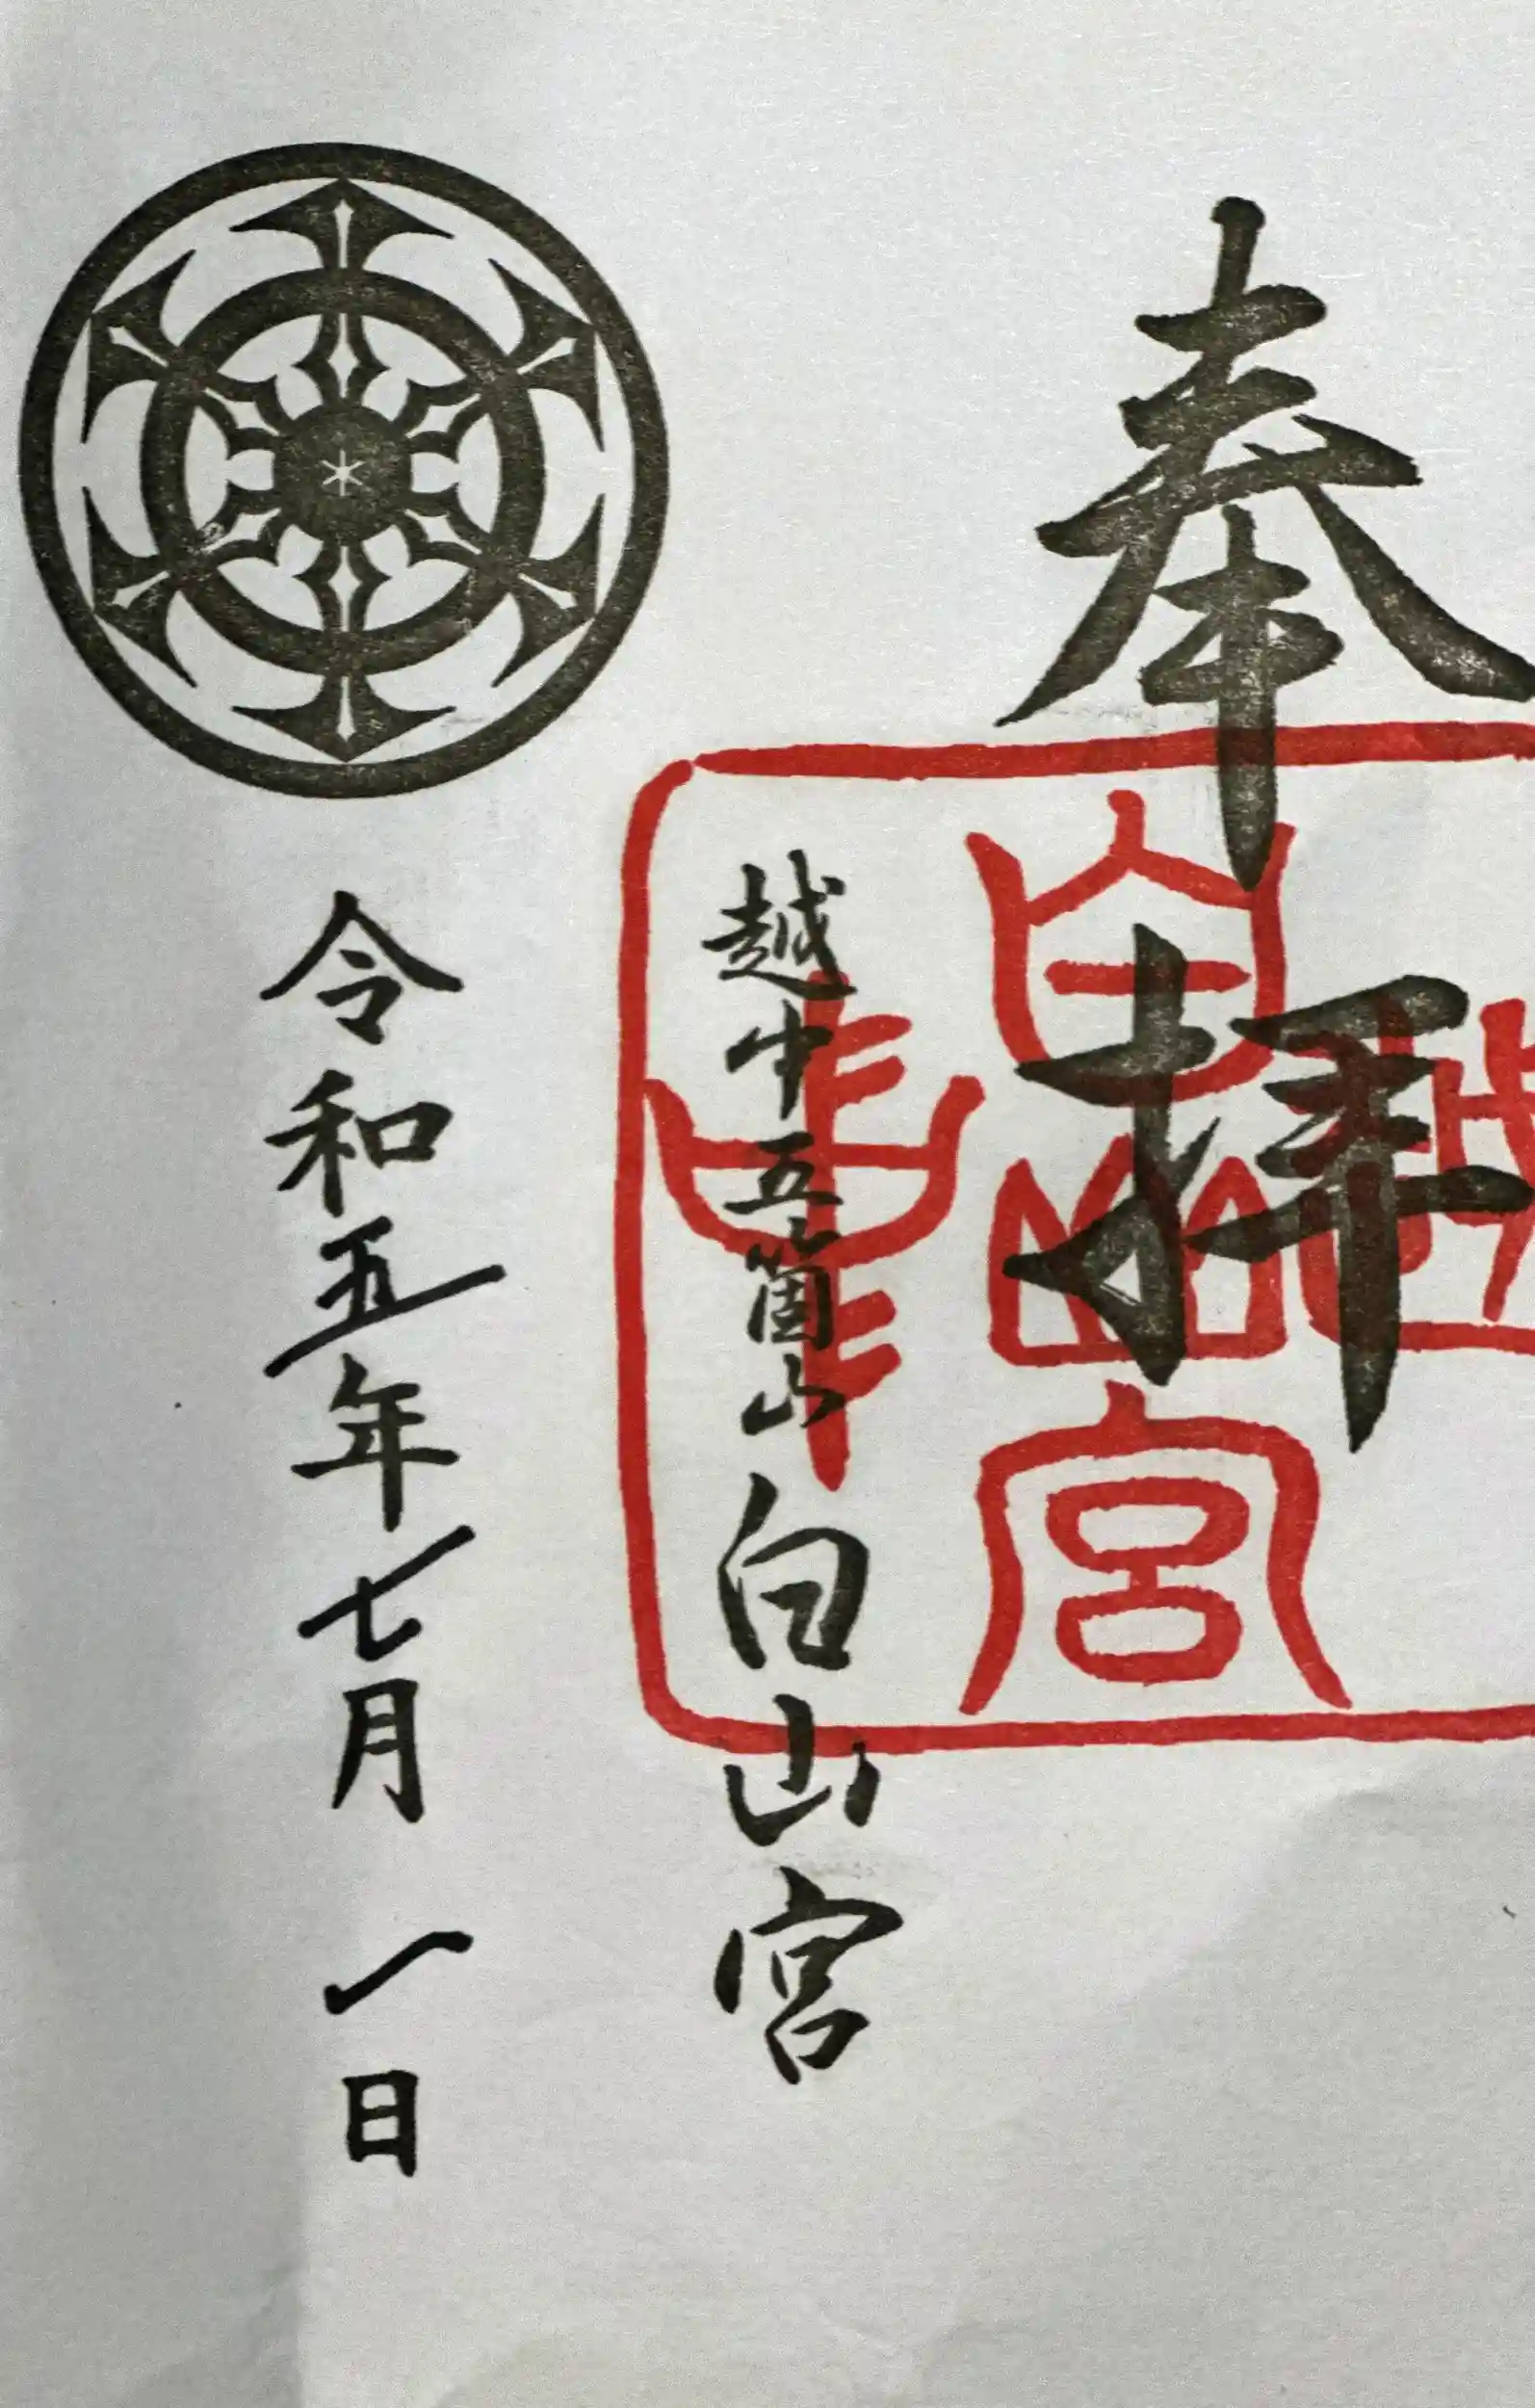 奉拝
越
白山宮
中
越中五箇山 白山宮
令和五年七月一日